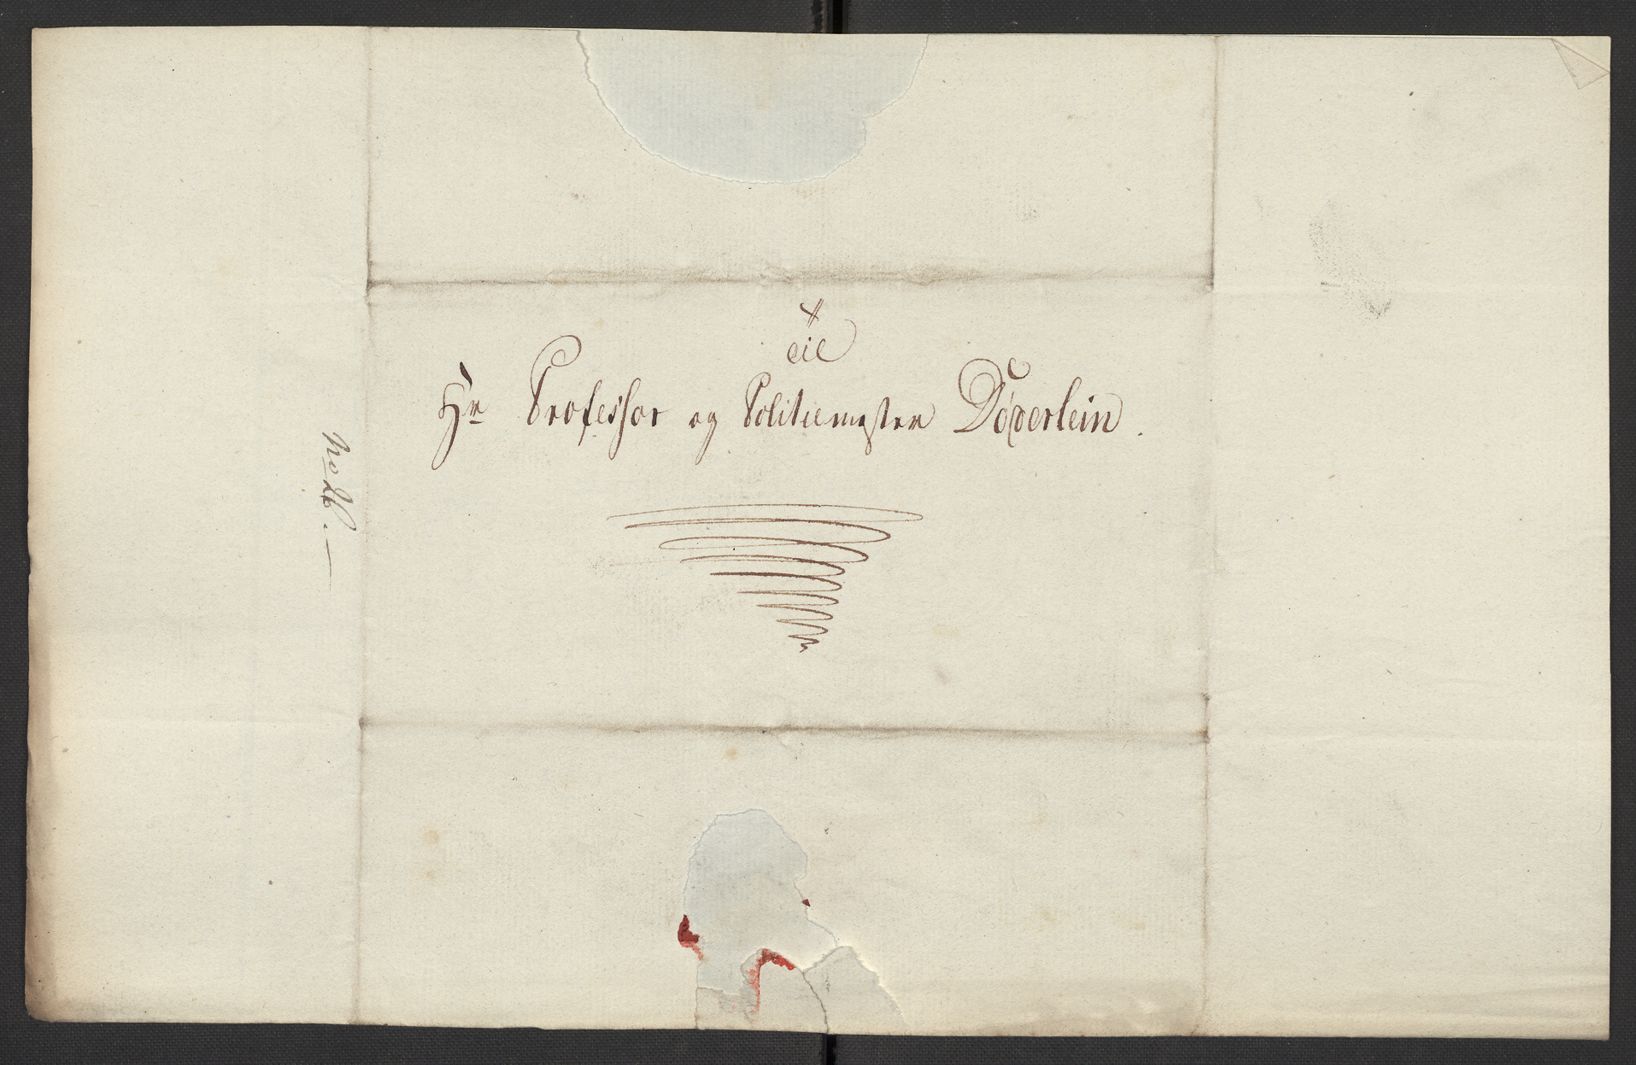 Til
Hr Professor og Politiemester Döderlein.
No 26.